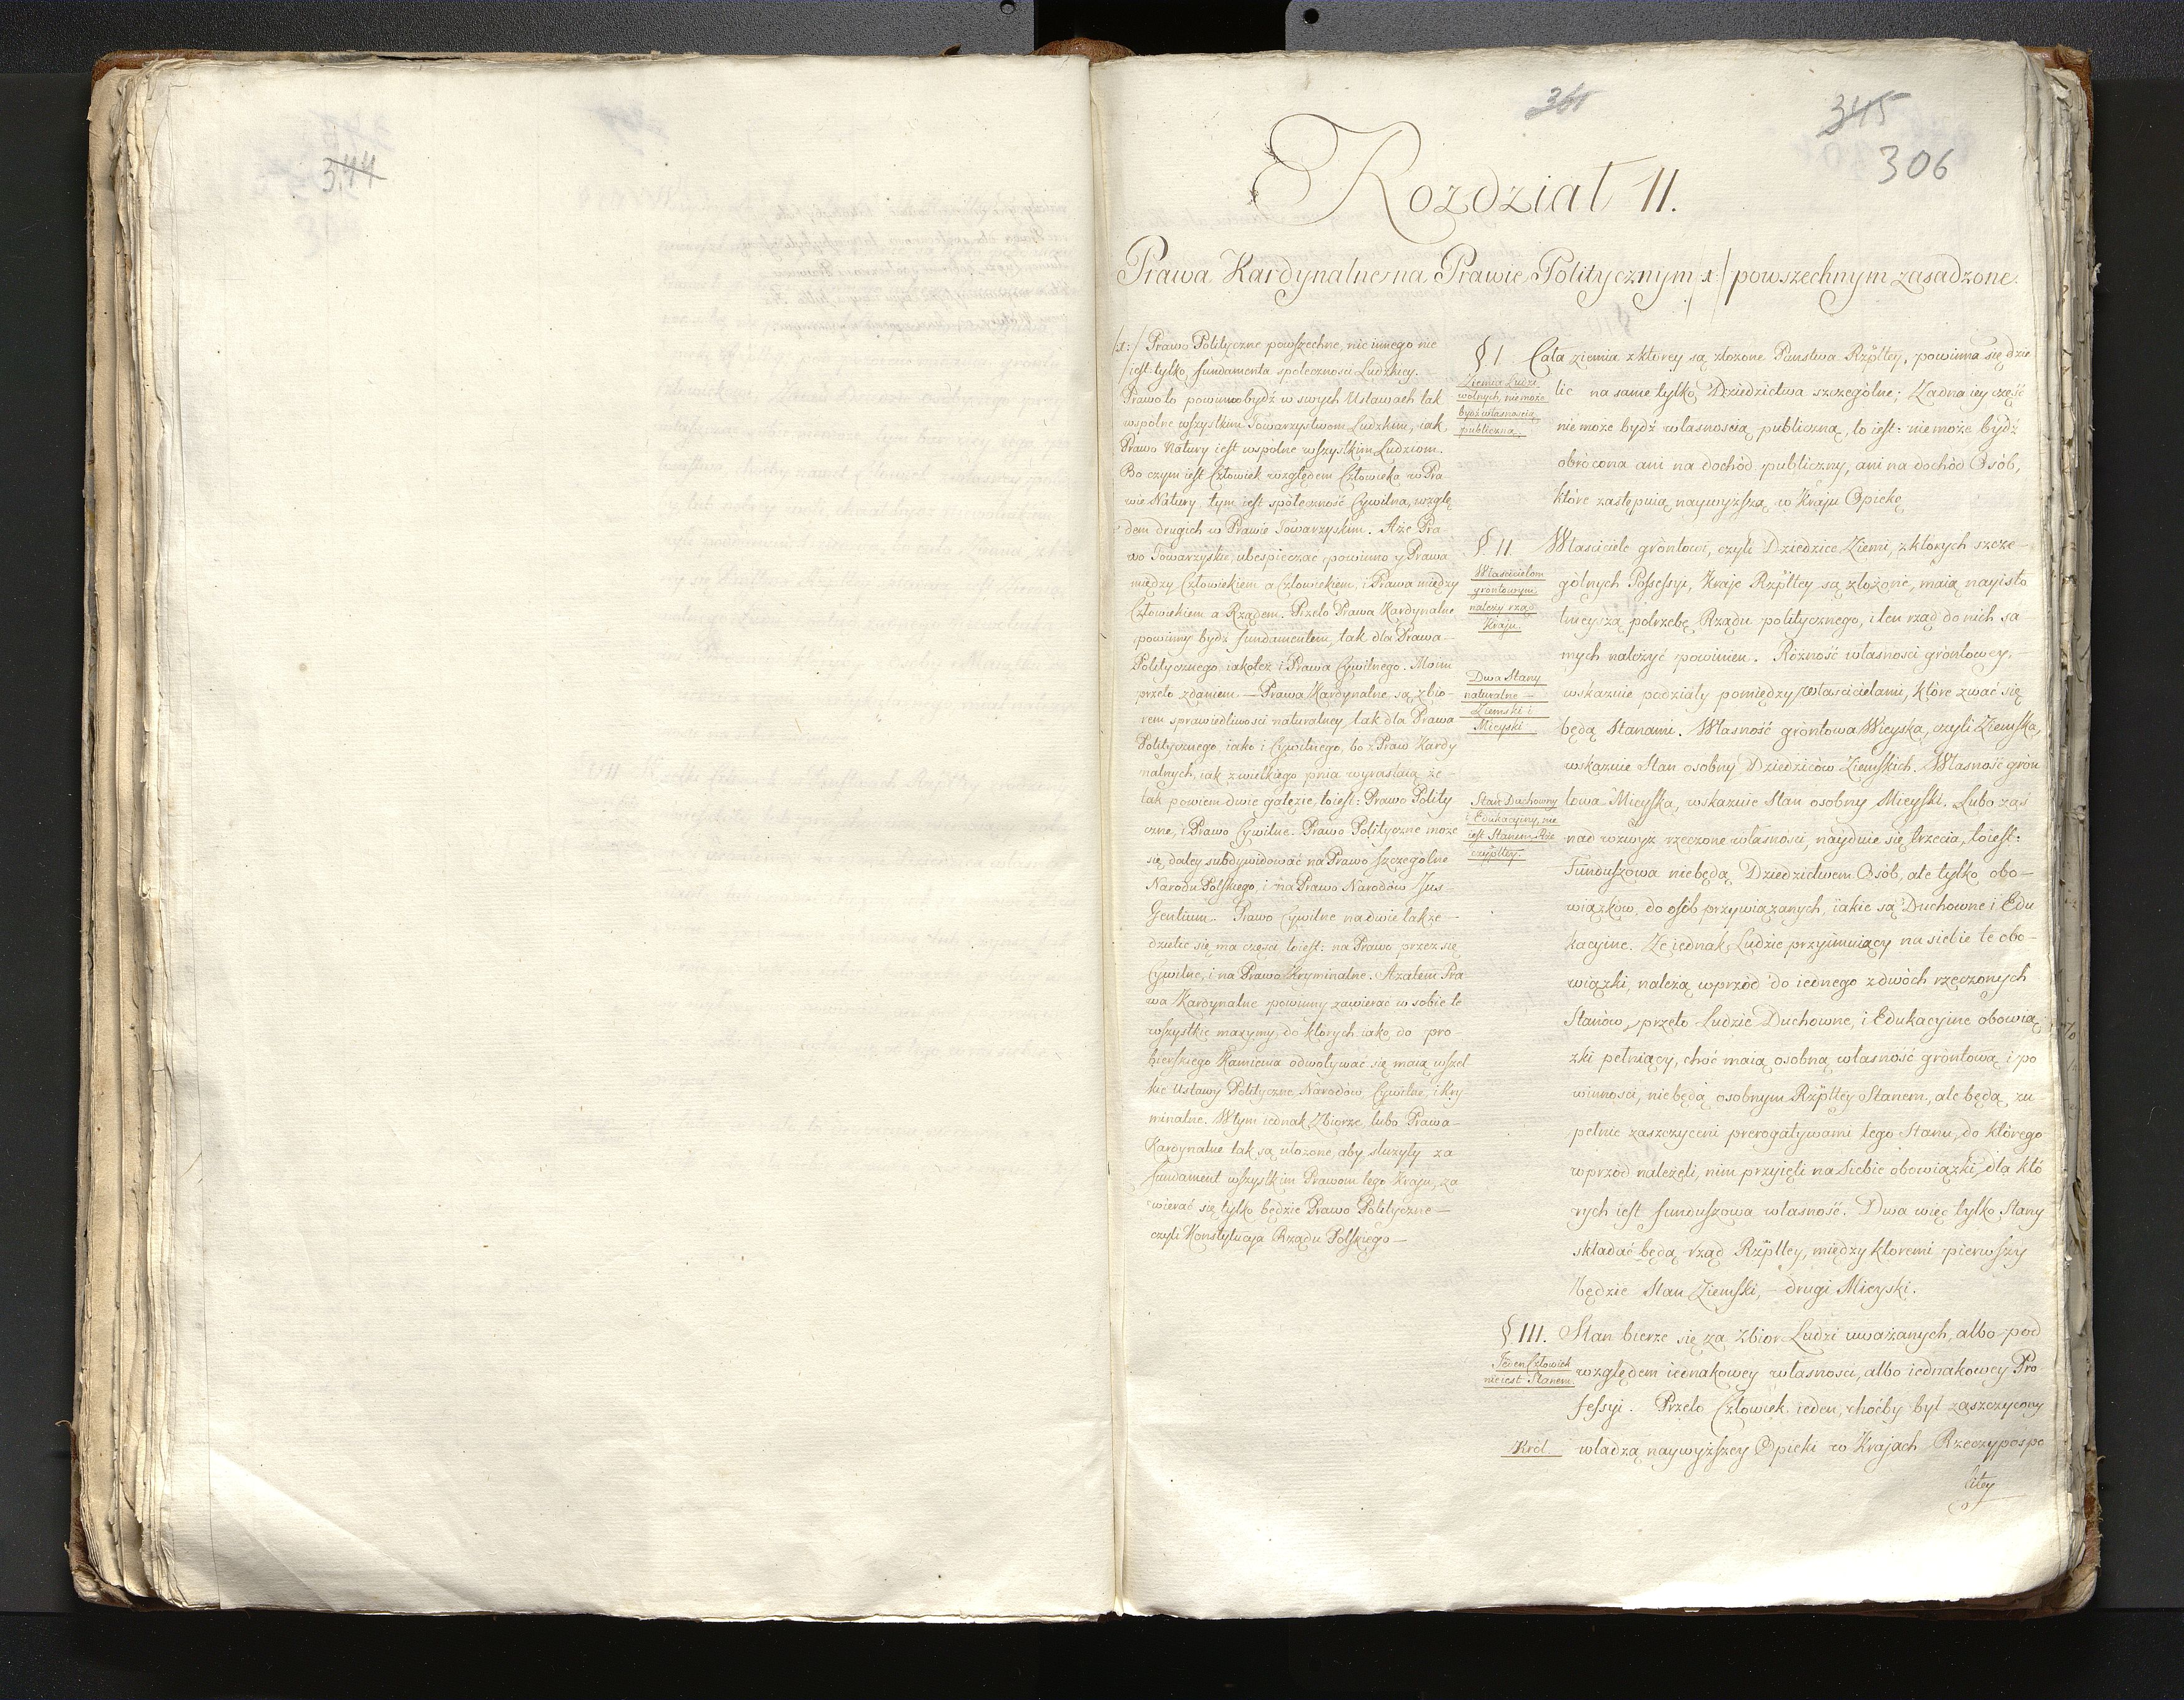 344
361
345
306
Rozdział II.
Prawa Kardynalne na Prawie Politycznym /x/ powszechnym zasadzone.
/x:/ Prawo Polityczne powszechne, nic innego nie
iest: tylko fundamenta społeczności Ludzkiey.
Prawo to powinno bydź w swych Ustawach tak
wspolne wszystkim Towarzystwom Ludzkim, iak
Prawo Natury iest wspolne wszystkim Ludziom.
Bo czym iest Człowiek względem Człowieka w Pra
wie Natury, tym iest społeczność Cywilna, wzglę
dem drugich w Prawie Towarzyskim. A że Pra
wo Towarzyskie ubespieczać powinno y Prawa
między Człowiekiem a Człowiekiem, i Prawa między
Człowiekiem a Rządem. Przeto Prawa Kardynalne
powinny bydź fundamentem, tak dla Prawa –
Politycznego, iakoteż i Prawa Cywilnego. Moim
przeto zdaniem – Prawa Kardynalne są zbio-
rem sprawiedliwosci naturalney, tak dla Prawa
Politycznego, iako i Cywilnego, bo z Praw Kardy
nalnych, iak z wielkiego pnia wyrastaią że –
tak powiem dwie gałęzie, toiest: Prawo Polity
czne, i Prawo Cywilne. Prawo Polityczne może
się daley subdywidować na Prawo szczególne
Narodu Polskiego, i na Prawo Narodów Jus –
Gentium. Prawo Cywilne na dwie także –
dzielić się ma części toiest: na Prawo przez się
Cywilne, i na Prawo Kryminalne. A zatem Pra
wa Kardynalne powinny zawierać w sobie te
wszystkie maxymy, do których iako do pro-
bierskiego Kamienia odwoływać się maią wszel
kie Ustawy Polityczne, Narodów, Cywilne, i Kry
minalne. W tym iednak Zbiorze, lubo Prawa –
Kardynalne tak są ułożone, aby służyły za
fundament wszystkim Prawom tego Kraju, za
wierać się tylko będzie Prawo Polityczne –
czyli Konstytucja Rządu Polskiego –
§ I. Cała ziemia z ktorey są złożone Panstwa Rzpltey, powinna się dzie
Ziemia Ludzi
wolnych, nie może
bydź własnością
publiczną.
lić na same tylko Dziedzictwa szczególne; Żadna iey część
nie może bydź własnoscią publiczną, to iest: nie może bydź
obrócona ani na dochód publiczny, ani na dochód Osób,
które zastępuią naywyższą w Kraju Opiekę
§ II. Właściciele gròntowi, czyli Dziedzice Ziemi, z których szcze –
Właścicielom
grontowym
należy rząd
Kraju.
gòlnych Possessyi, Kraje Rzpltey są złożone, maią nayisto
tnieyszą potrzebę Rządu politycznego, i ten rząd do nich sa
mych należyć powinien. Rózność własnosci gròntowey –
Dwa Stany
naturalne –
Ziemski i
Mieyski
wskazuie podziały pomiędzy właścicielami, które zwać się
będą Stanami. Własność gròntowa Wieyska, czyli Ziemska,
wskazuie Stan osobny Dziedziców Ziemskich. Własność gròn
Stan Duchowny
i Edukacyiny, nie
iest Stanem Rze
czypltey.
towa Mieyska, wskazuie Stan osobny Mieyski. Lubo zaś
nad wzwyż rzeczone własnosci, nayduie się trzecia, toiest:
Funduszowa niebędą Dziedzictwem Osób, ale tylko obo –
wiązkow, do osób przywiązanych, iakie są Duchowne i Edu
kacyine. Że iednak Ludzie przyimuiący na siebie te obo-
wiązki, należą wprzód do iednego z dwòch rzeczonych
Stanów, przeto Ludzie Duchowne, i Edukacyine obowią
zki pełniący, choć maią osobną własność gròntową i po
winnosci, niebędą osobnym Rzpltey Stanem, ale będą zu
pełnie zaszczyceni prerogatywami tego Stanu, do którego
wprzód należeli, nim przyięli na siebie obowiązki, dla któ
rych iest funduszowa własność. Dwa więc tylko Stany
składać będą rząd Rzpltey, między ktoremi pierwszy
będzie Stan Ziemski, – drugi Mieyski.
§ III. Stan bierze się za Zbior Ludzi uważanych, albo pod
Jeden Człowiek
nie iest Stanem.
względem iednakowey własnosci, albo iednakowey Pro
fessyi. Przeto Człowiek ieden, choćby był zaszczycony
Król
władzą naywyższey Opieki w Krajach Rzeczypospo
litey